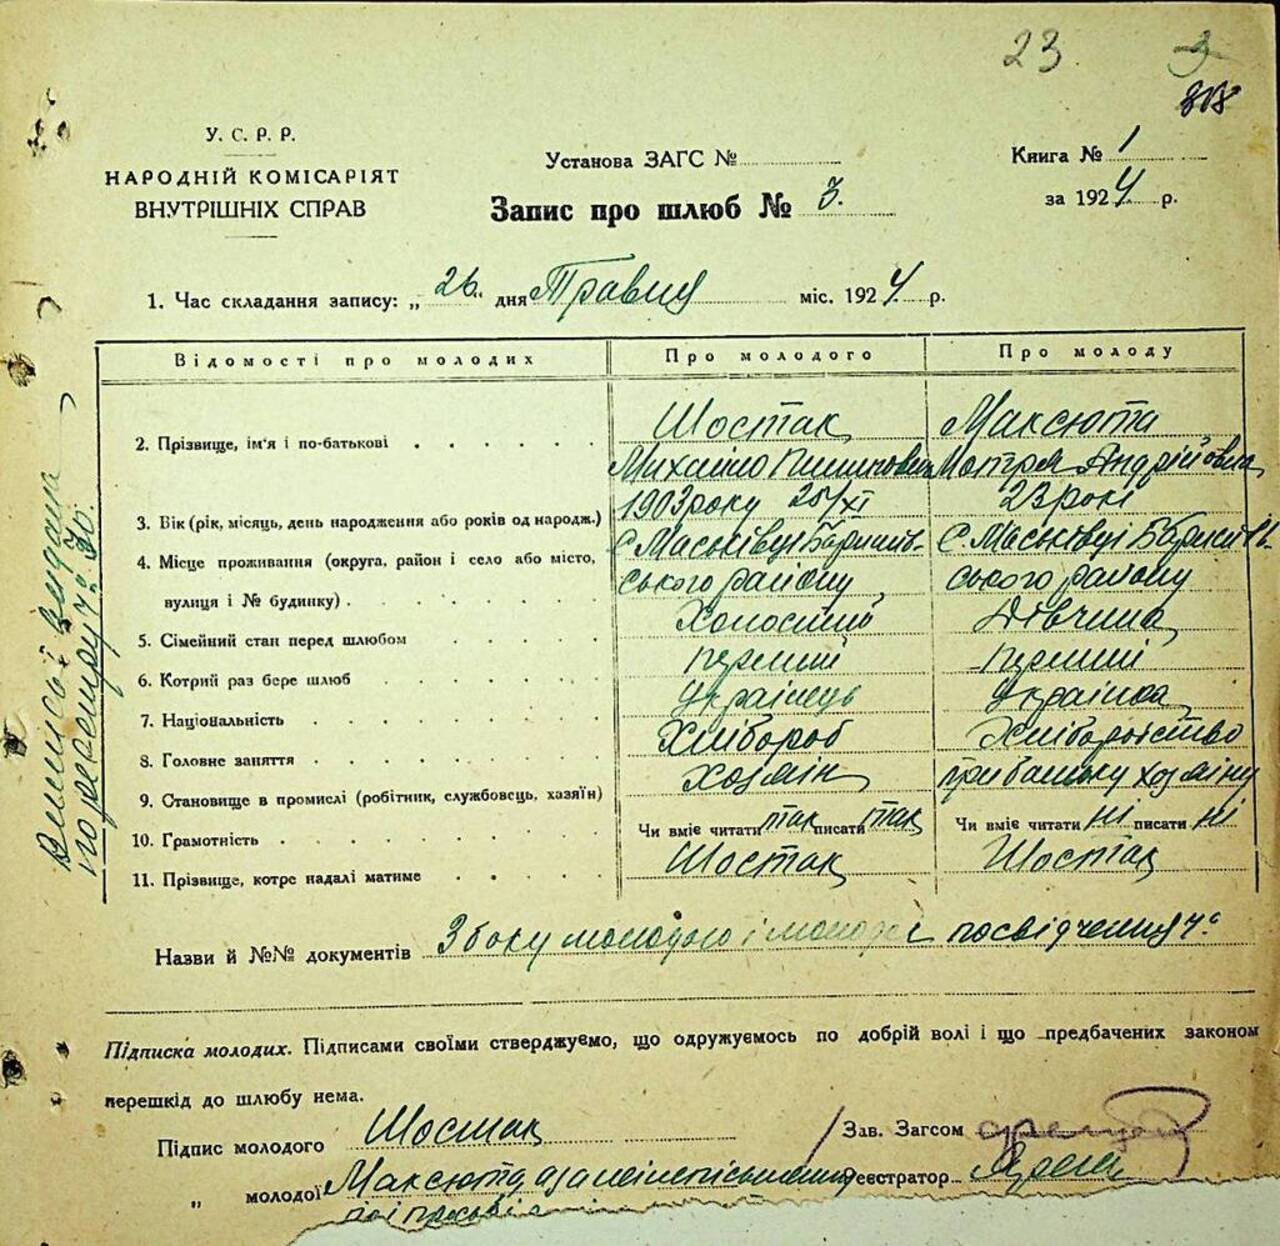 23 3
808
У. С. Р. Р.
НАРОДНІЙ КОМІСАРІЯТ
ВНУТРІШНІХ СПРАВ
Установа ЗАГС №
Запис про шлюб № 3.
Книга № 1
за 1924 р.
1. Час складання запису: „26" дня Травня міс. 1924. р.
Відомості про молодих Про молодого Про молоду
2. Прізвище, ім'я і по-батькові Шостак Максюта
Михайло Мотря Андріївна
3. Вік (рік, місяць, день народження або років од народж.) 1903 року 25/XI 23 рокі
4. Місце проживання (округа, район і село або місто, с. Маськівці Баришів- с. Маськівці Баришів
вулиця і № будинку) ського району ського району
5. Сімейний стан перед шлюбом Холостий Дівчина
6. Котрий раз бере шлюб первший первший
7. Національність Українець Українка
8. Головне заняття Хлібороб Хліборобство
9. Становище в промислі (робітник, службовець, хазяїн) Хозяїн при батьку хозяїну
10. Грамотність Чи вміє читати так писати так Чи вміє читати ні писати ні
11. Прізвище, котре надалі матиме Шостак Шостак
Назви й №№ документів З боку молодого і молодої посвідчення ч°
Підписка молодих. Підписами своїми стверджуємо, що одружуємось по добрій волі і що предбачених законом
перешкід до шлюбу нема.
Підпис молодого Шостак Зав. Загсом
„ молодої Максюта а за неписьменну Реєстратор
Виписі видана
по реєстру ч° 30.